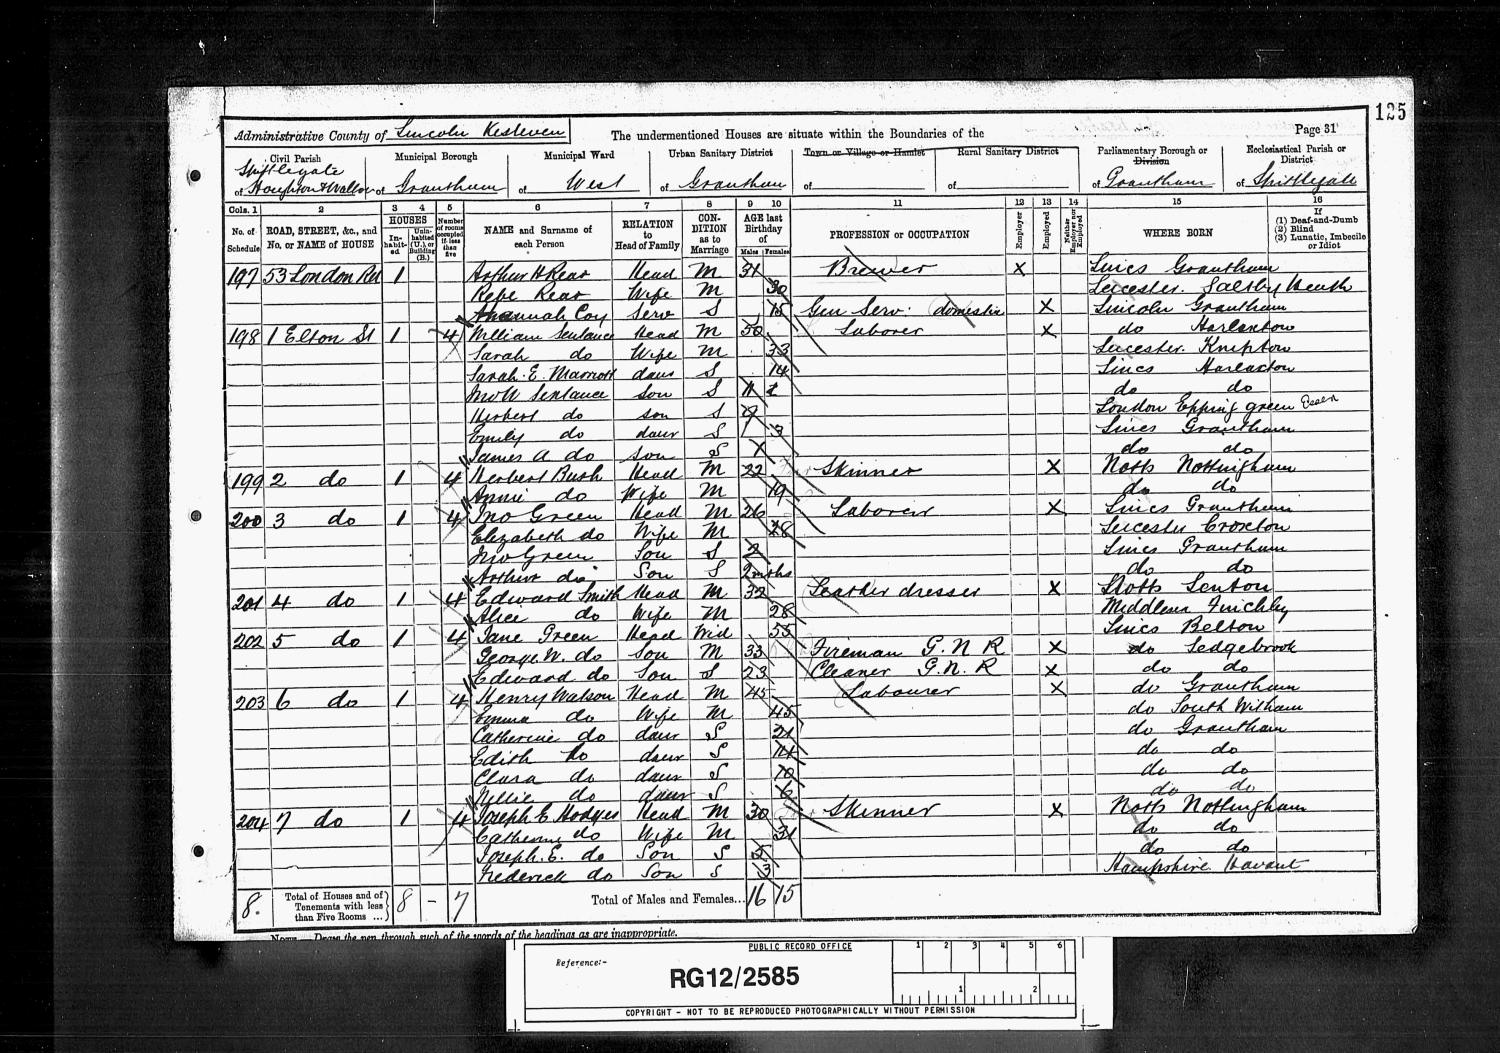 125
Administrative County of Lincoln Kesteven The undermentioned Houses are situate within the Boundaries of the Page 31
Civil Parish Municipal Borough Municipal Ward Urban Sanitary District Town or Village or Hamlet Rural Sanitary District Parliamentary Borough or Division Ecclesiastical Parish or District
of Spittlegate Houghton & Walton of Grantham of West of Grantham of of of Grantham of Spittlegate
Cols. 1 2 3 4 5 6 7 8 9 10 11 12 13 14 15 16
No. of Schedule ROAD, STREET, &c., and No. or NAME of HOUSE HOUSES In-habit-ed Unin-habited (U.), or Building (B.) Number of rooms occupied if less than five NAME and Surname of each Person RELATION to Head of Family CON-DITION as to Marriage AGE last Birthday of Males Females PROFESSION or OCCUPATION Employer Employed Neither Employer nor Employed WHERE BORN If (1) Deaf-and-Dumb (2) Blind (3) Lunatic, Imbecile or Idiot
197 53 London Rd 1 Arthur H Rear Head M 31 Brewer X Lincs Grantham
Rebe Rear Wife M 30 Leicester. Saltby Heath
Hannah Coy Serv S 15 Gen Serv: domestic X Lincoln Grantham
198 1 Elton St 1 4 William Sentance Head M 50 Laborer X do Harlaxton
Sarah do Wife M 33 Leicester. Knipton
Sarah. E. Marriott daur S 14 Lincs Harlaxton
Jno W Sentance son S 11 do do
Herbert do son S 9 London Epping green Essex
Emily do daur S 3 Lincs Grantham
James A do son S 1 do do
199 2 do 1 4 Herbert Bush Head M 22 Skinner X Notts Nottingham
Annie do Wife M 19 do do
200 3 do 1 4 Jno Green Head M 26 Laborer X Lincs Grantham
Elizabeth do Wife M 28 Leicester Croxton
Jno Green Son S 2 Lincs Grantham
Arthur do Son S 2mths do do
201 4 do 1 4 Edward Smith Head M 32 Leather dresser X Notts Lenton
Alice do Wife M 28 Middlesex Finchley
202 5 do 1 4 Jane Green Head Wid 55 Lincs Belton
George. W. do Son M 33 Fireman G. N R X do Sedgebrook
Edward do Son S 23 Cleaner G. N. R X do do
203 6 do 1 4 Henry Watson Head M 45 Labourer X do Grantham
Emma do Wife M 45 do South Witham
Catherine do daur S 21 do Grantham
Edith do daur S 14 do do
Clara do daur S 10 do do
Nellie do daur S 6 do do
204 7 do 1 4 Joseph E Hodges Head M 30 Skinner X Notts Nottingham
Catherine do Wife M 31 do do
Joseph. E. do Son S 5 do do
Frederick do Son S 3 Hampshire Havant
8. Total of Houses and of Tenements with less than Five Rooms ... 8 - 7 Total of Males and Females... 16 15
NOTE.—Draw the pen through such of the words of the headings as are inappropriate.
PUBLIC RECORD OFFICE 1 2 3 4 5 6
Reference:-
RG12/2585
1 2
COPYRIGHT - NOT TO BE REPRODUCED PHOTOGRAPHICALLY WITHOUT PERMISSION